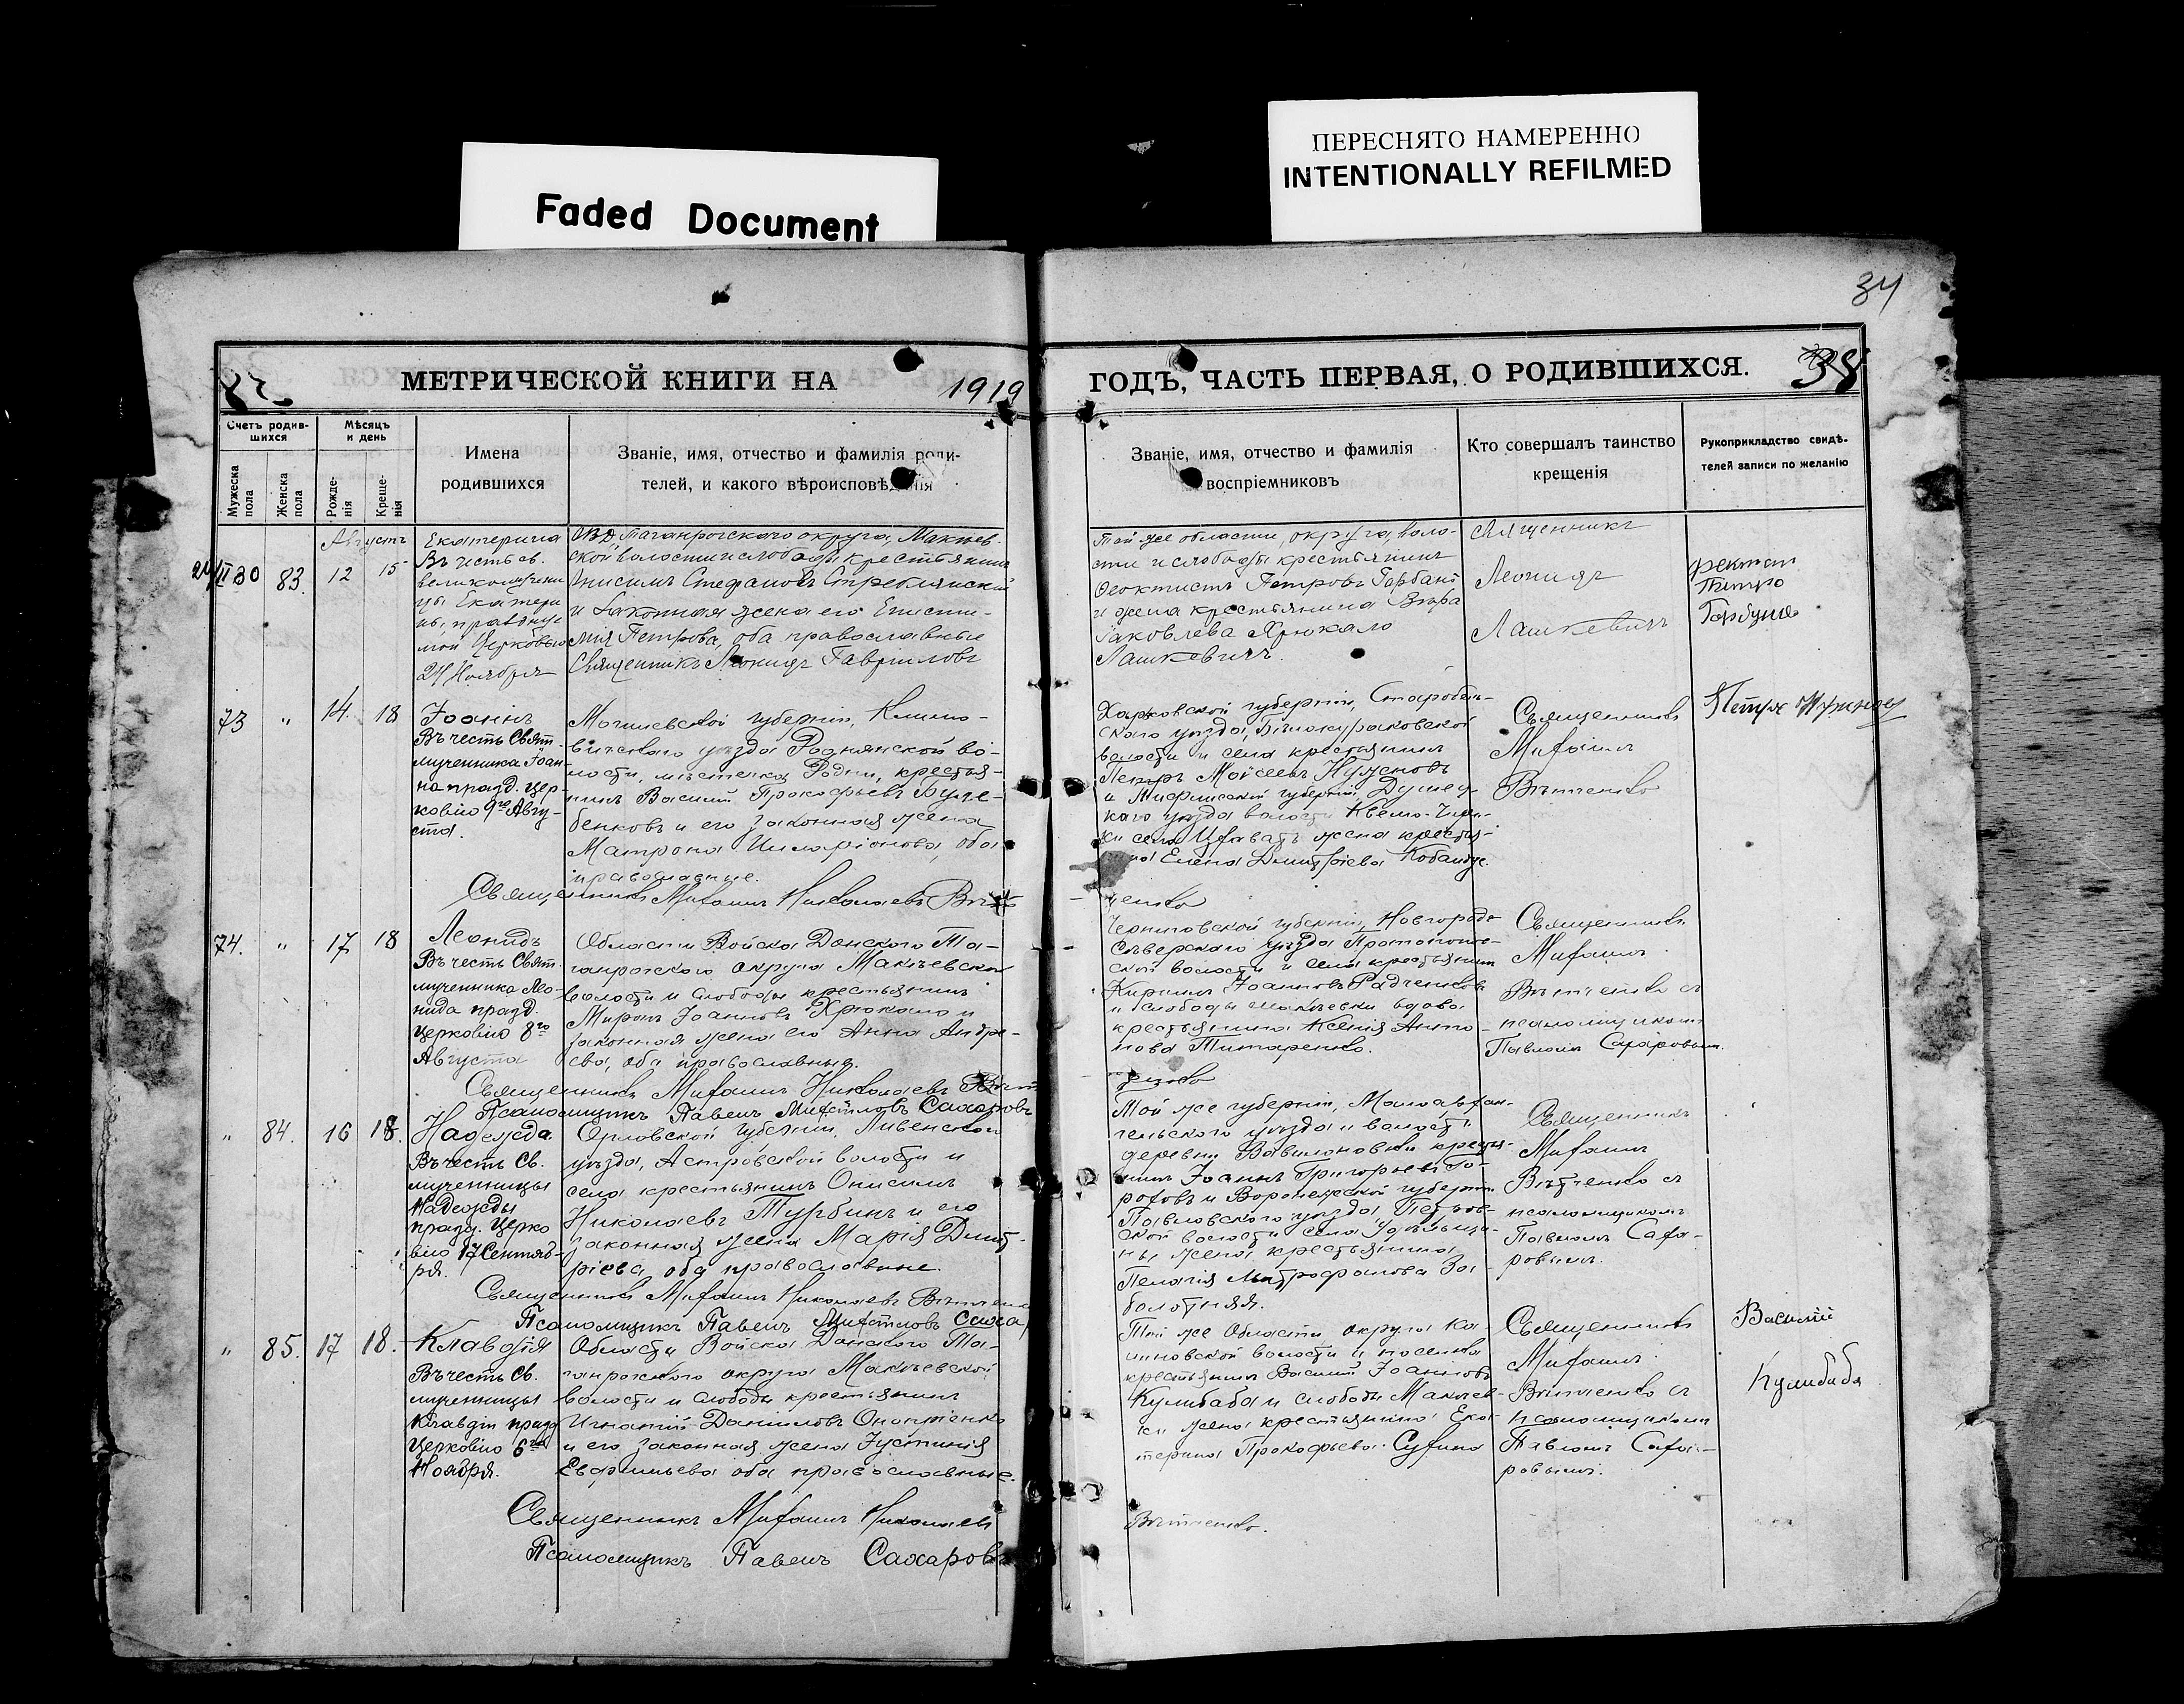 Faded Document
ПЕРЕСНЯТО НАМЕРЕННО
INTENTIONALLY REFILMED
34
МЕТРИЧЕСКОЙ КНИГИ НА 1919
ГОДЪ, ЧАСТЬ ПЕРВАЯ, О РОДИВШИХСЯ.
38
Счетъ родив-
шихся
Мужеска пола
Женска пола
Мѣсяцъ
и день
Рожде-
нія
Креще-
нія
Имена
родившихся
Званіе, имя, отчество и фамилія роди-
телей, и какого вѣроисповѣданія
Званіе, имя, отчество и фамилія
воспріемниковъ
Кто совершалъ таинство
крещенія
Рукоприкладство свидѣ-
телей записи по желанію
Августъ
83.
12
15
Екатерина
Въ честь св.
великомучени
цы Екатери
ны, праздуе
мой Церковью
24 Ноября
ОВД Таганрогского округа, Макѣев-
ской волости и слободы крестьянинъ
Онисимъ Стефановъ
и законная жена его Еписти-
мія Петрова, оба православные
Священникъ Леонидъ Гавріиловъ
Той же области, округа, воло-
сти и слободы крестьянинъ
Феоктистъ Петровъ Горбань
и жена крестьянина Вѣра
Іаковлева Хрюкало
Лашкевичъ.
Священникъ
Леонидъ
Лашкевичъ
73
"
14.
18
Іоаннъ
Въ честь Свят.
мученника Іоан-
на празд. Цер-
ковію 9го Авгу-
ста.
Могилевской губерніи, Климо-
вичскаго уѣзда Роднянской во-
лости, мѣстечка Родни, крестья-
нинъ Василій Прокофьевъ
бенковъ и его законная жена
Матрона Иларіонова, оба
православные.
Священникъ Михаилъ Николаевъ Вѣт
Харьковской губерніи, Старобѣль-
скаго уѣзда, Бѣлокураковской
волости и села крестьянинъ
Петръ Моисеевъ Нужновъ
и Тифлисской губерніи, Душет-
каго уѣзда волости
села жена крестья-
нина Елена Димитріева
ченко
Священникъ
Михаилъ
Вѣтченко
Петръ Нужновъ
74.
"
17
18
Леонидъ
Въ честь Свят.
мученника Лео-
нида празд.
Церковію 8го
Августа
Области Войска Донского Та-
ганрогского округа Макѣевской
волости и слободы крестьянинъ
Миронъ Іоанновъ Хрюкало и
законная жена его Анна Андре-
ева, оба православные.
Священникъ Михаилъ Николаевъ Вѣт
Псаломщикъ Павелъ Сахаровъ
Черниговской губерніи, Новгородо
Сѣверскаго уѣзда Протопопов-
ской волости и села крестьянинъ
Кириллъ Іоанновъ Радченковъ
и слободы Макѣевки вдова
крестьянина Ксенія Анто-
нова Титаренко.
ченко
Священникъ
Михаилъ
Вѣтченко съ
псаломщикомъ
Павломъ Сахаровымъ.
"
84.
16
18.
Надежда
Въ честь Св.
мученницы
Надежды
празд. Церко
вію 17 Сентяб-
ря.
Орловской губерніи, Ливенского
уѣзда, Астровской волости и
села крестьянинъ Онисимъ
Николаевъ Турбинъ и его
законная жена Марія Димит-
ріева, оба православные.
Священникъ Михаилъ Николаевъ Вѣтченко
Псаломщикъ Павелъ Сахаровъ
Той же губерніи, Малоархан-
гельского уѣзда и волости
деревни Вавилоновки крестья-
нинъ Іоаннъ Григорьевъ Го-
роховъ и Воронежской губерніи
Павловского уѣзда Петров-
ской волости села
жена крестьянина
Пелагія Митрофанова За-
болотняя.
Священникъ
Михаилъ
Вѣтченко съ
псаломщикомъ
Павломъ Саха-
ровымъ.
"
85.
17
18.
Клавдія
Въ честь Св.
мученницы
Клавдіи празд
Церковію 6го
Ноября.
Области Войска Донского Та-
ганрогского округа Макѣевской
волости и слободы крестьянинъ
Игнатій Даніиловъ Онопченко
и его законная жена Іустинія
Евфимьева оба православные.
Священникъ Михаилъ Николаевъ
Псаломщикъ Павелъ Сахаровъ
Той же Области округа Ка-
линовской волости и поселка
крестьянинъ Василій Іоанновъ
Кулибаба и слободы Макѣев-
ки жена крестьянина Ека-
терина Прокофьева Сухина
Вѣтченко.
Священникъ
Михаилъ
Вѣтченко съ
псаломщикомъ
Павломъ Саха-
ровымъ.
Василий
Кулибаба